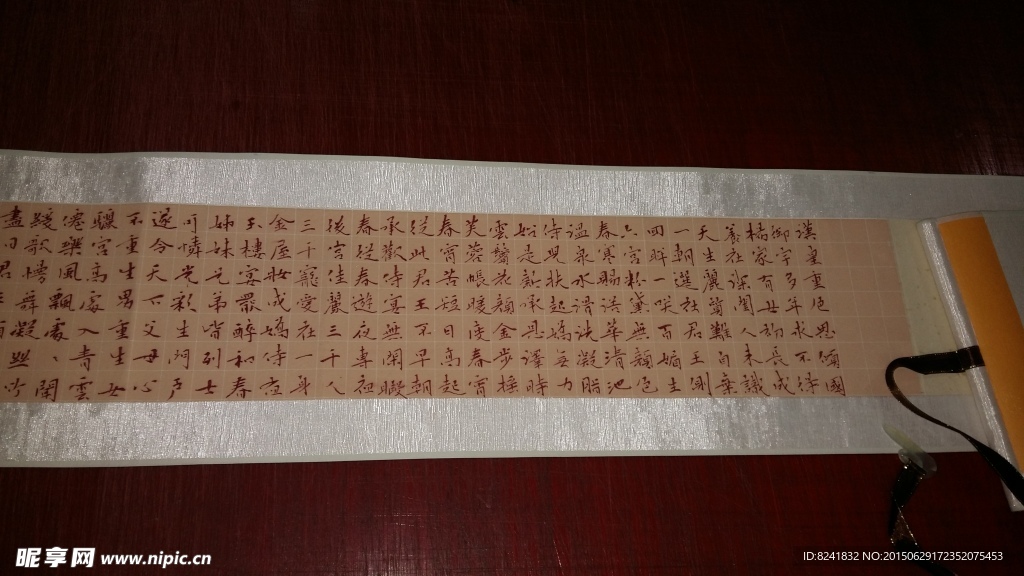 漢皇重色思傾國
御宇多年求不得
楊家有女初長成
養在深閨人未識
天生麗質難自棄
一朝選在君王側
回眸一笑百媚生
六宮粉黛無顏色
春寒賜浴華清池
溫泉水滑洗凝脂
侍兒扶起嬌無力
始是新承恩澤時
雲鬢衣顏金步搖
芙蓉帳暖度春宵
春宵苦短日高起
從此君王不早朝
承歡侍宴無閒暇
春從春遊夜專夜
後宮佳麗三千人
三千寵愛在一身
金屋妝成嬌侍夜
玉樓宴罷醉和春
姊妹兄弟皆列士
可憐光彩生門户
遂令天下父母心
不重生男重生女
驪宮高處入青雲
仙樂風飄處處聞
緩歌慢舞凝絲竹
盡日君王
昵享网 www.nipic.cn
ID:8241832 NO:20150629172352075453